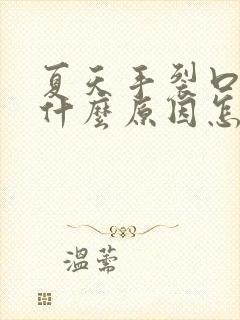 夏天手裂口
什麼原因怎
溫蕎